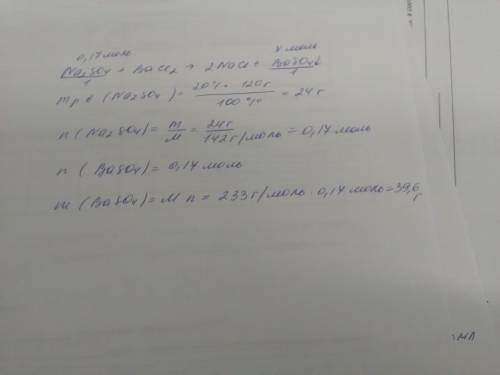 0,17 моль x моль
Na2SO4 + BaCl2 → 2NaCl + BaSO4↓
1 1
mр.в (Na2SO4) = 20% · 120г / 100% = 24г
n (Na2SO4) = m/M = 24г / 142г/моль = 0,17 моль
n (BaSO4) = 0,17 моль
m (BaSO4) = M n = 233г/моль · 0,17 моль = 39,6 г